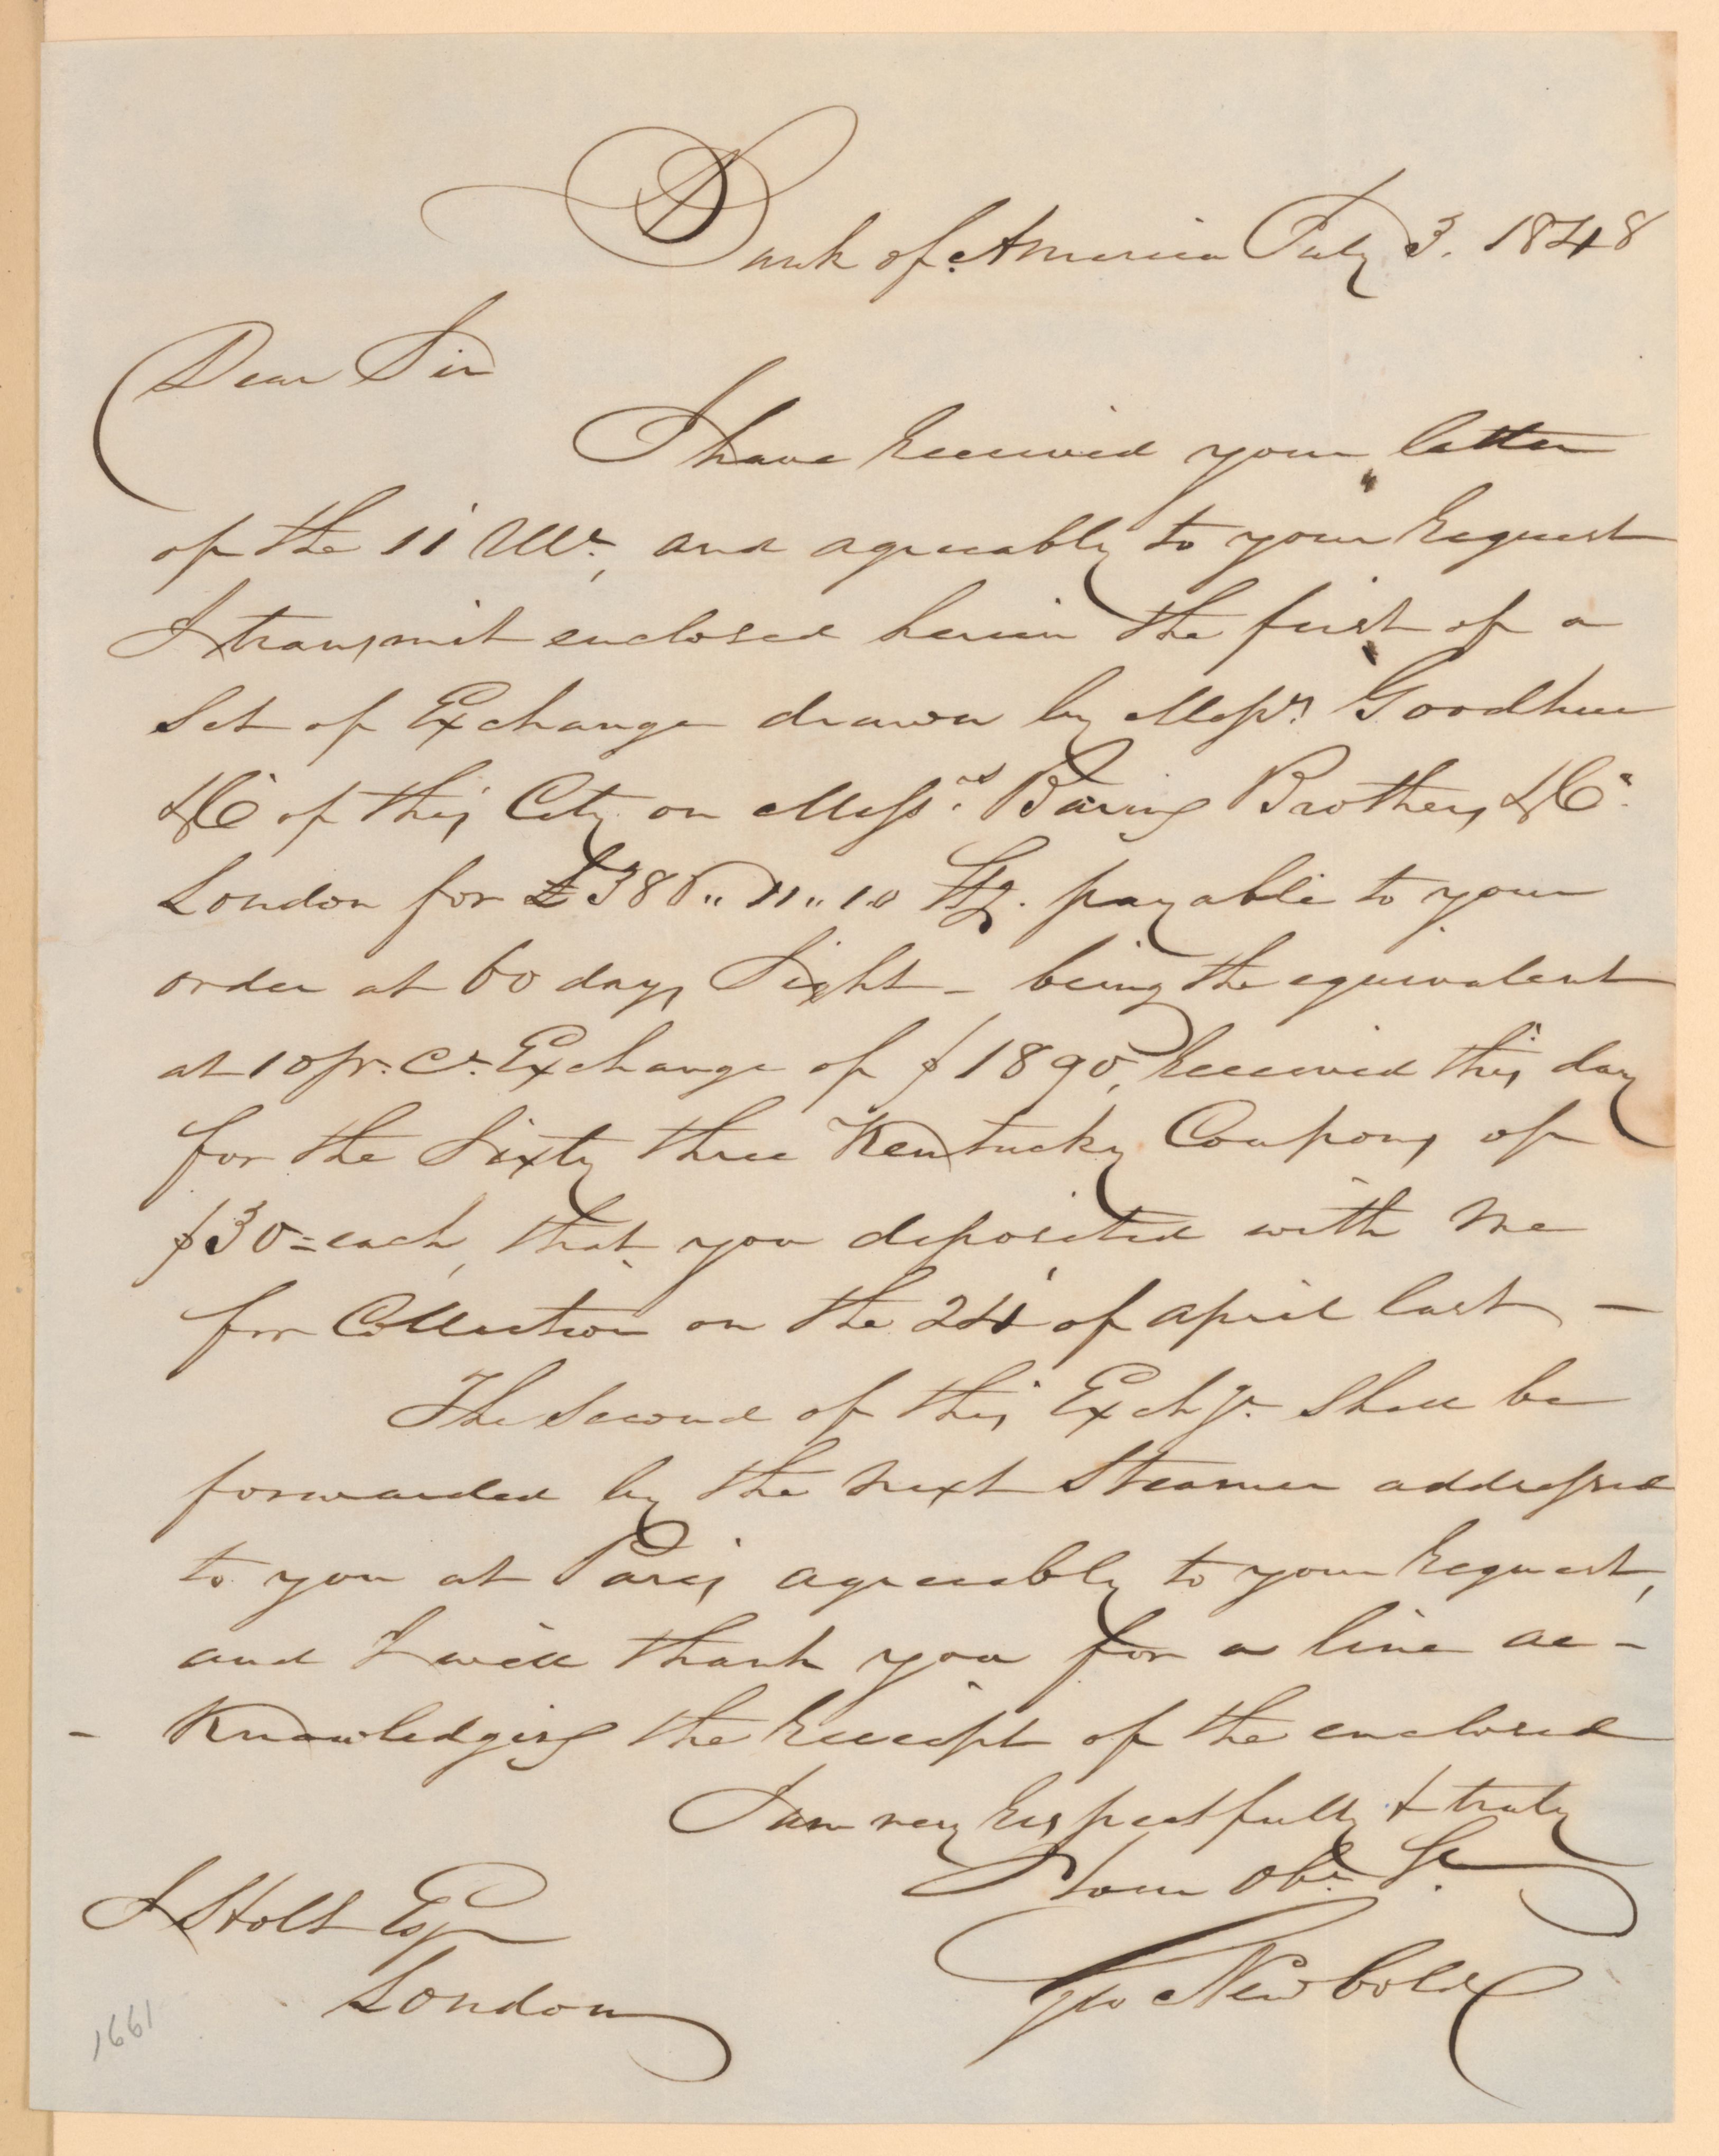 Bank of America July 3. 1848
Dear Sir
I have received your letter
of the 11 Ulto, and agreeably to your request
I transmit enclosed herein the first of a
Set of Exchange drawn by Messrs Goodhue
& Co of this City on Messrs Baring Brothers & Co.
London for £386..11..10 Stg. payable to your
order at 60 days Sight - being the equivalent
at 10 pr. Ct. Exchange of $1890, received this day
for the Sixty three Kentucky Coupons of
$30= each, that you deposited with me
for Collection on the 24 of april last —
The Second of this Exchge. Shall be
forwarded by the next Steamer addressed
to you at Paris agreeably to your request,
and I will thank you for a line ac-
- knowledging the receipt of the enclosed
I am very respectfully & truly
Your Obt. St.
J Holt Esqr
Geo Newbold
London
1661